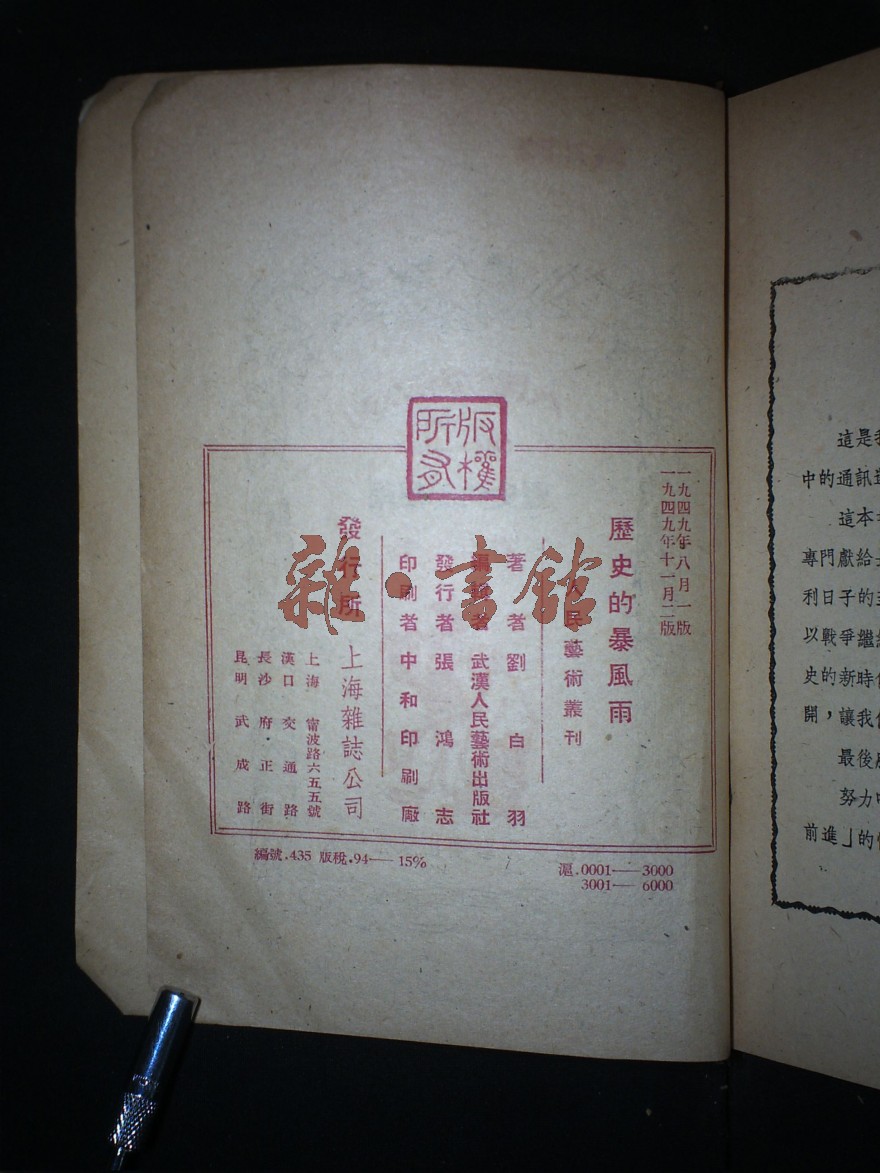 版權
所有
一九四九年八月一版
一九四九年十一月二版
歷史的暴風雨
人民藝術叢刊
著者 劉白羽
編輯者 武漢人民藝術出版社
發行者 張鴻志
印刷者 中和印刷廠
發行所 上海雜誌公司
上海 甯波路六五五號
漢口 交通路
長沙 府正街
昆明 武成路
滬.0001——3000
3001——6000
編號.435 版稅.94——15%
雜·書舘
這是我
中的通訊
這本
專門獻給
利日子的
以戰爭繼續
史的新時
開，讓我
最後
努力
前進」的